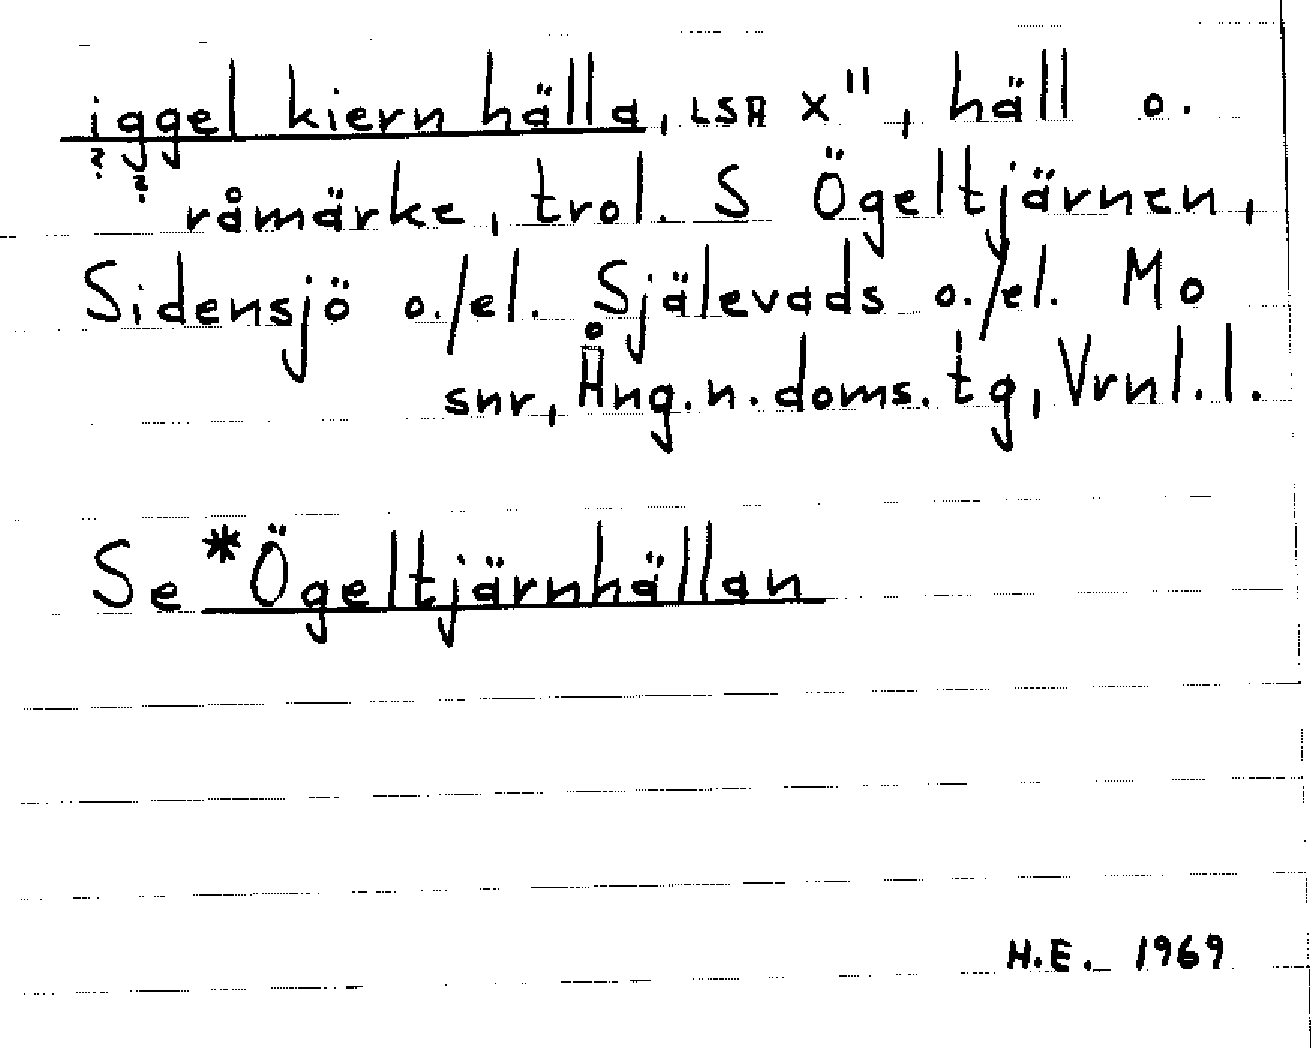 iggel kiern hälla, LSA x", häll o.
? ?
råmärke, trol. S Ögeltjärnen,
Sidensjö o./el. Själevads o./el. Mo
snr, Ång.n.doms.tg, Vrnl.l.
Se *Ögeltjärnhällan
H.E. 1969